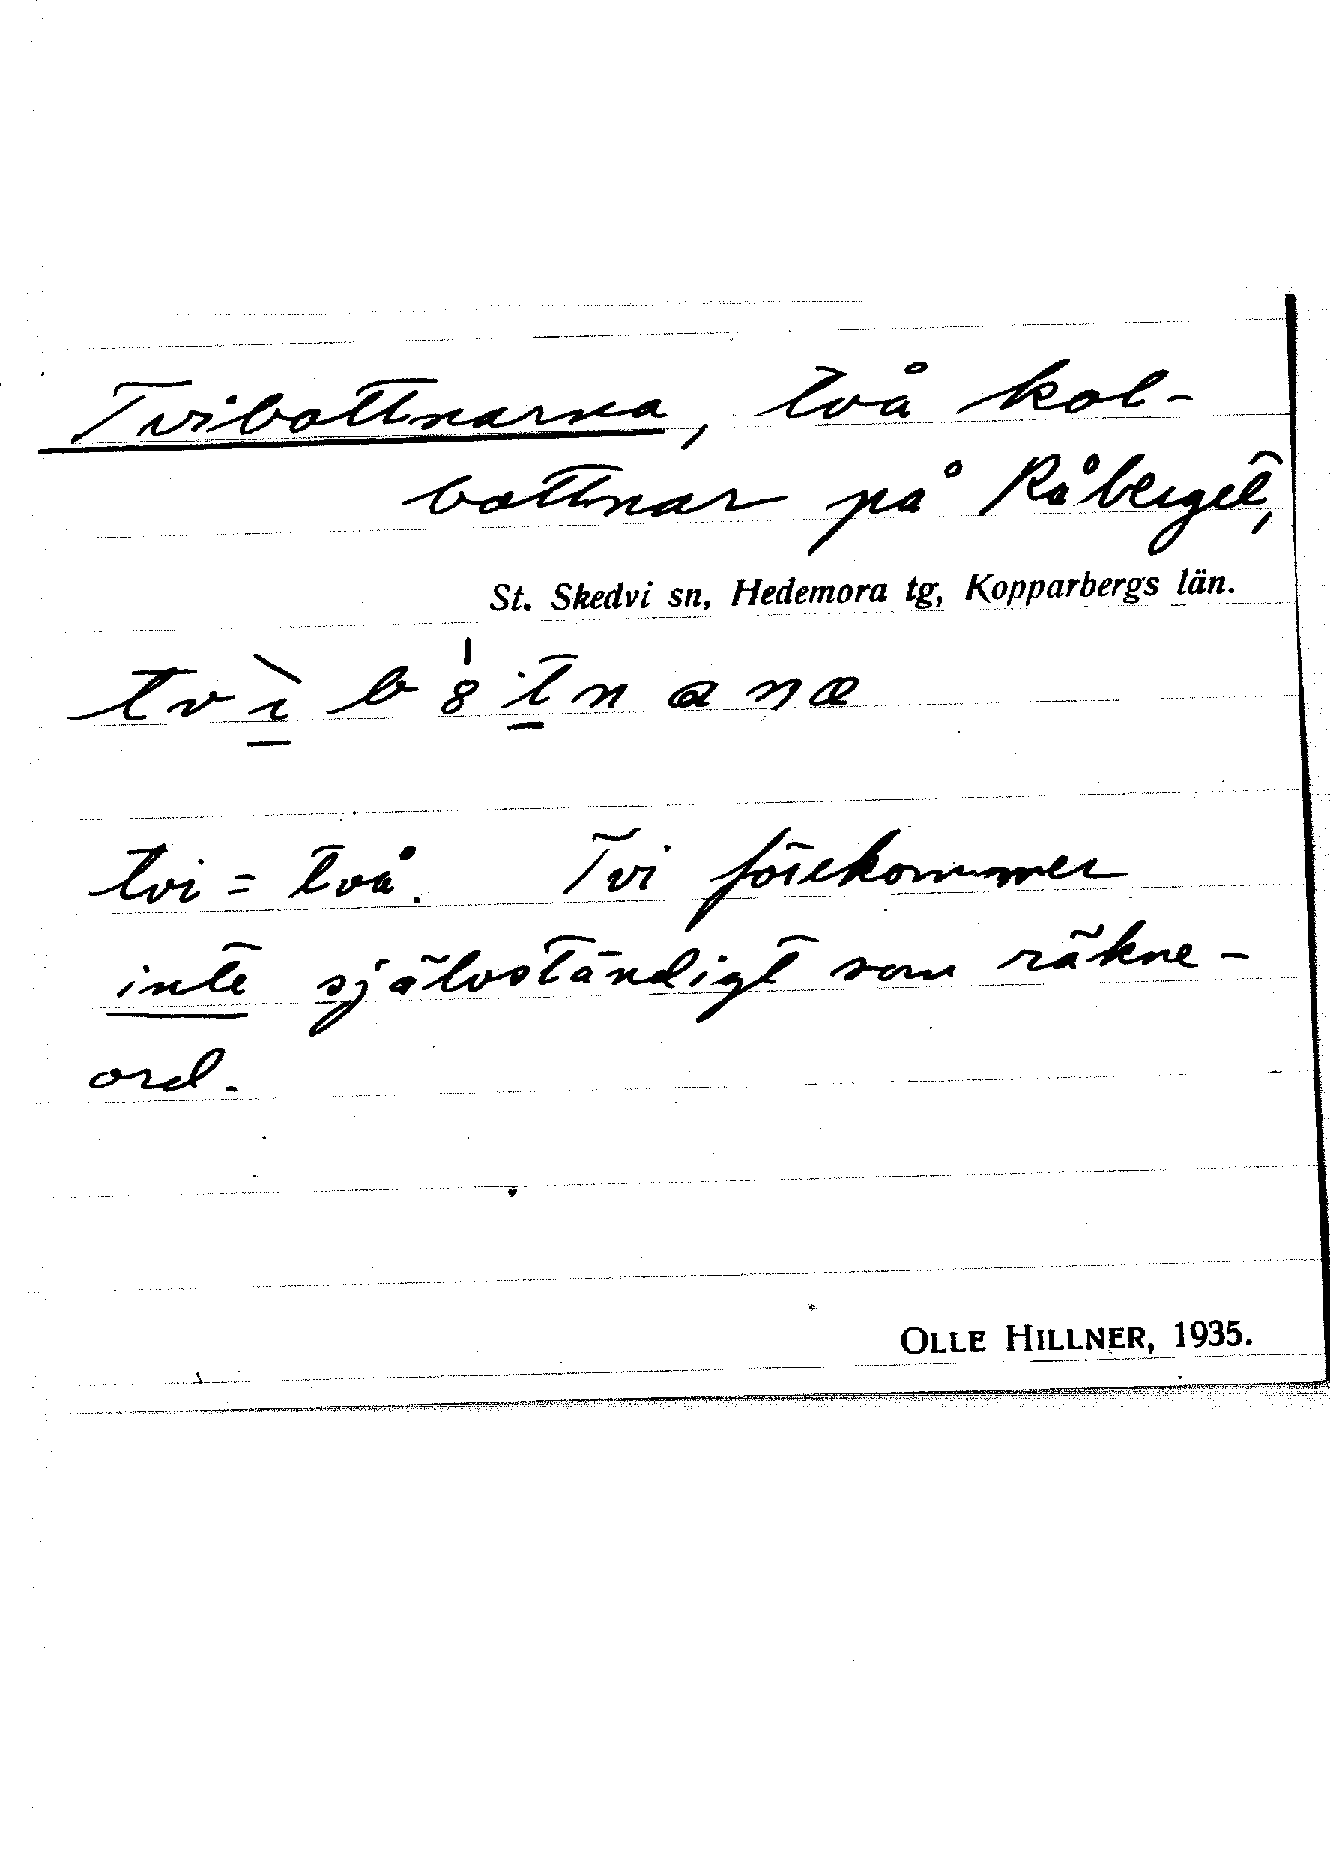 Tvibottnarna, två kol-
bottnar på Råberget,
St. Skedvi sn, Hedemora tg, Kopparbergs län.
tvìb8tnana
tvi = två. Tvi förekommer
inte självständigt som räkne-
ord.
OLLE HILLNER, 1935.